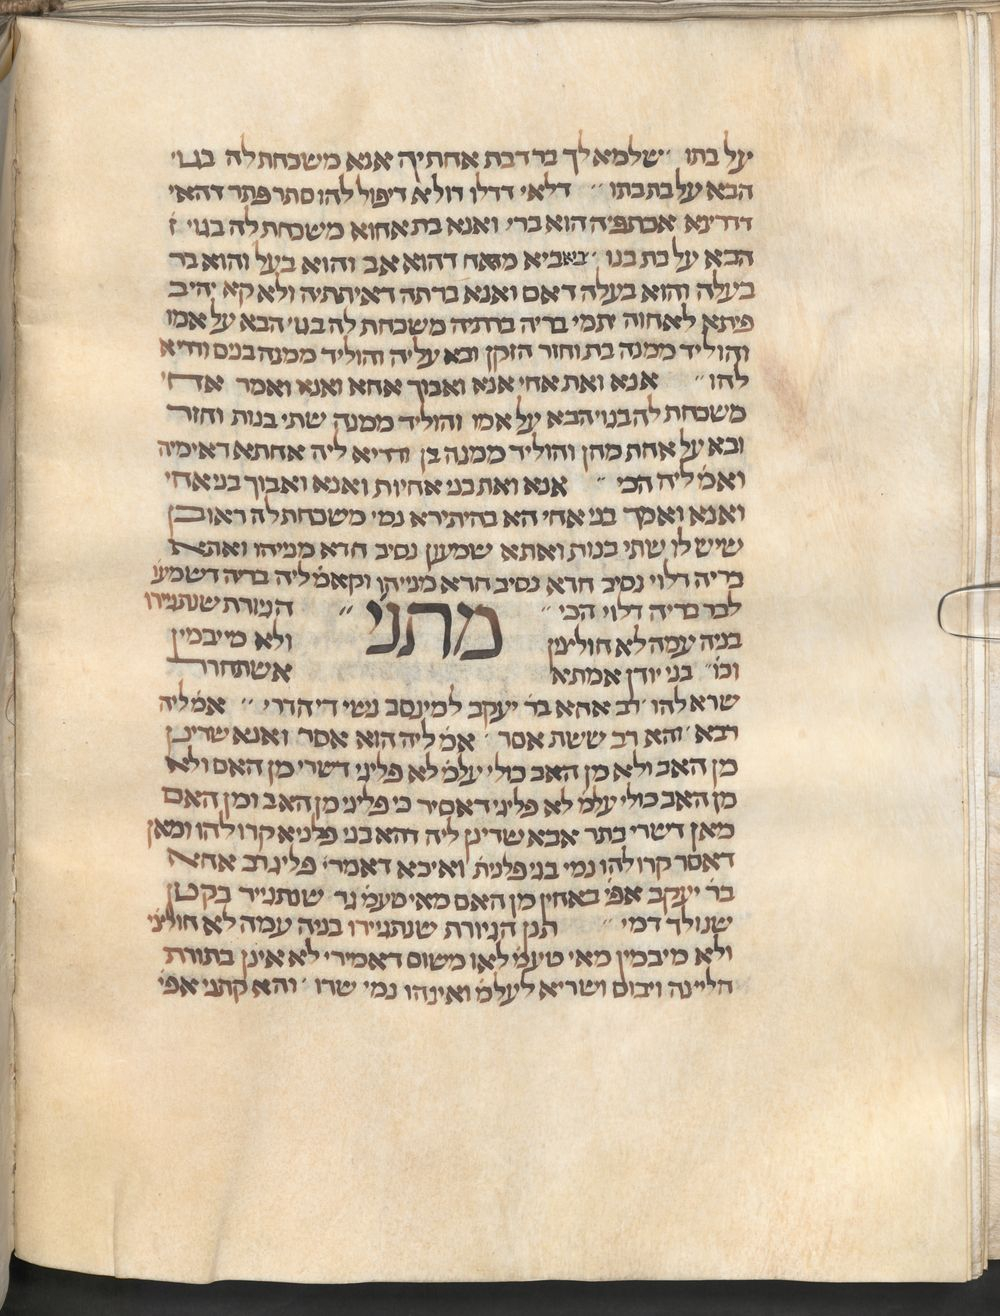 על בתו ״ שלמא לך בר דבת אחתיה אנא משכחת לה בגוי
הבא על בת בתו ״ דלאי דדלו דולא דיפול להו סתר פתר דהאי
דדרינא אכתפיה הוא ברי ואנא בת אחוא משכחת לה בגוי
הבא על בת בנו ״ באביא מאח דהוא אב והוא בעל והוא בר
בעלה והוא בעלה דאם ואנא ברתה דאיתתיה ולא קא יהיב
פיתא לאחוה יתמי בריה ברתיה משכחת לה בגוי הבא על אמו
והוליד ממנה בת וחזר הזקן ובא עליה והוליד ממנה בנים והיא
להו ״ אנא ואת אחי אנא ואבוך אחא ואנא ואמך אחי
משכחת לה בגוי הבא על אמו והוליד ממנה שתי בנות וחזר
ובא על אחת מהן והוליד ממנה בן וקריא ליה אחתא דאימיה
ואמ׳ ליה הכי ״ אנא ואת בני אחיות ואנא ואבוך בני אחי
ואנא ואמך בני אחי הא בהיתירא נמי משכחת לה ראובן
שיש לו שתי בנות ואתא שמעון נסיב חדא מניהו ואתא
בריה דלוי נסיב חדא נסיב חדא מניהו וקאמ׳ ליה בריה דשמעו
לבר בריה דלוי הכי ״ מתני׳ ״ הגיורת שנתגיירו
בניה עמה לא חולצין ולא מיבמין
וכו׳ ״ בני יודן אמתא אשתחרור
שרא להו רב אחא בר יעקב למינסב נשי דיהדדי ״ אמ׳ ליה
רבא והא רב ששת אסר אמ׳ ליה הוא אסר ואנא שרינן
מן האב ולא מן האב כולי עלמ׳ לא פליגי דשרי מן האם ולא
מן האב כולי עלמ׳ לא פליגי דאסיר כי פליגי מן האב ומן האם
מאן דשרי בתר אבא שדינן ליה דהא בני פלניא קרו להו ומאן
דאסר קרו להו נמי בני פלנית ואיכא דאמרי׳ פליג רב אחא
בר יעקב אפי׳ באחין מן האם מאי טעמ׳ גר שנתגייר כקטן
שנולד דמי ״ תנן הגיורת שנתגיירו בניה עמה לא חולצי׳
ולא מיבמין מאי טעמ׳ לאו משום דאמירי לא אינן בתורת
חליצה ויבום ושריא לעלמ׳ ואינהו נמי שרו והא קתני אפי׳